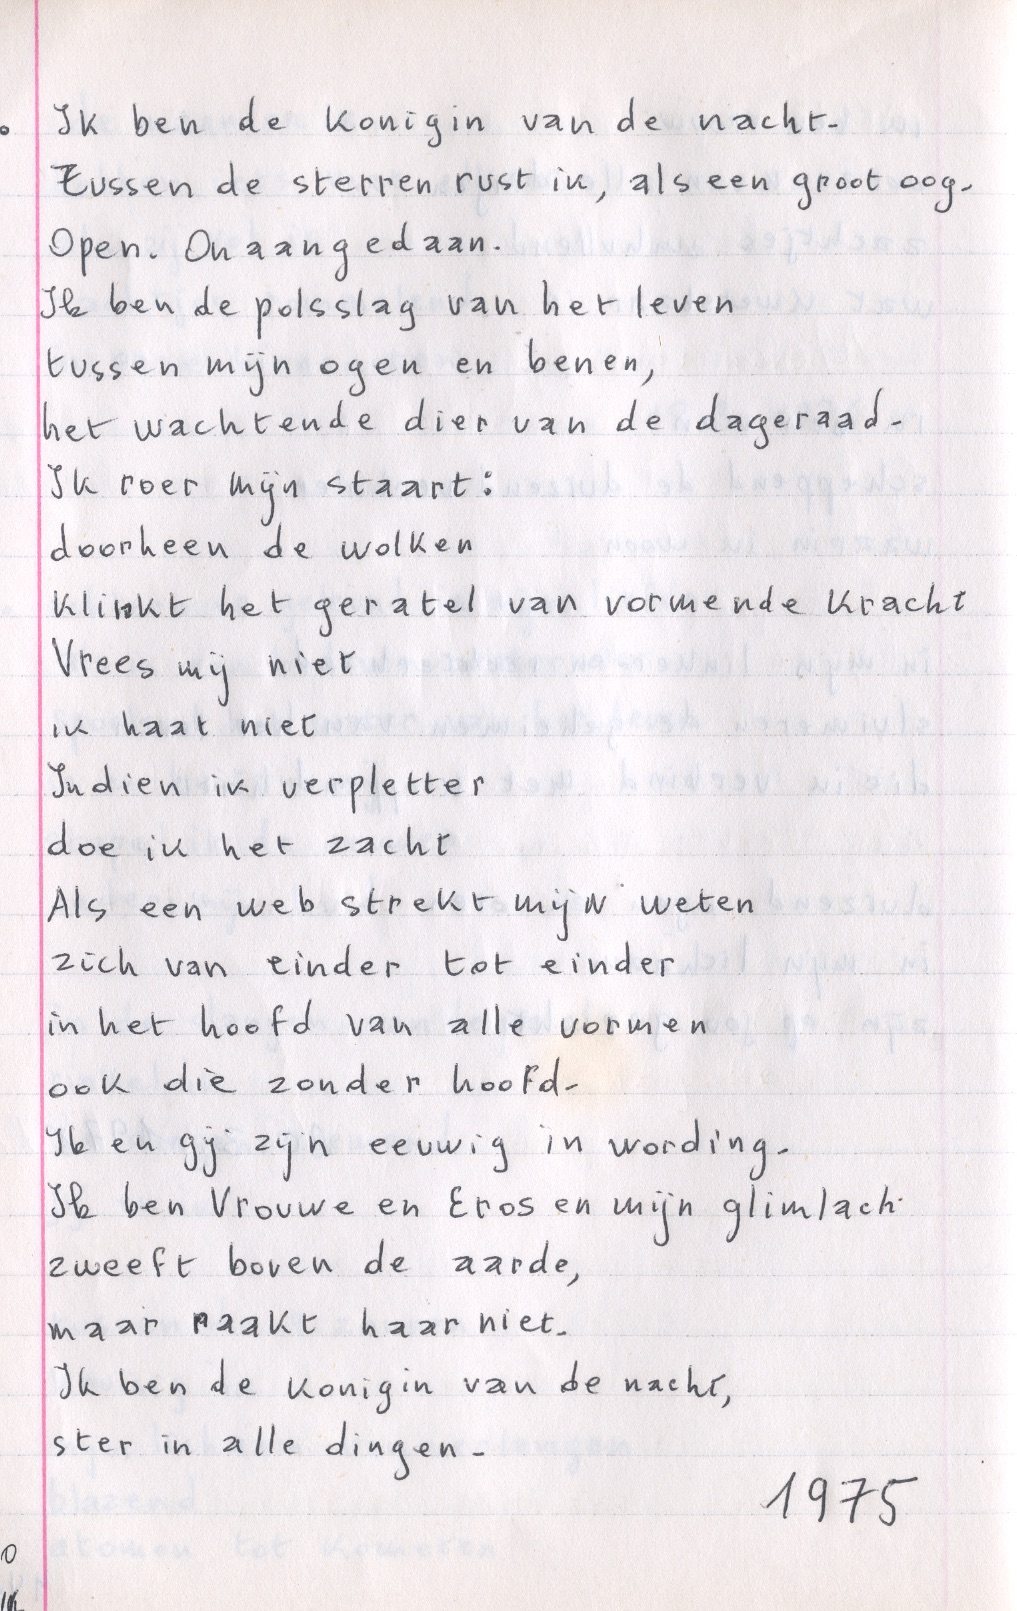 Ik ben de konigin van de nacht.
Tussen de sterren rust ik, als een groot oog.
Open. Onaangedaan.
Ik ben de polsslag van het leven
tussen mijn ogen en benen,
het wachtende dier van de dageraad.
Ik roer mijn staart:
doorheen de wolken
klinkt het geratel van vormende kracht
Vrees mij niet
ik haat niet
Indien ik verpletter
doe ik het zacht
Als een web strekt mijn weten
zich van einder tot einder
in het hoofd van alle vormen
ook die zonder hoofd.
Ik en gij zijn eeuwig in wording.
Ik ben Vrouwe en Eros en mijn glimlach
zweeft boven de aarde,
maar raakt haar niet.
Ik ben de konigin van de nacht,
ster in alle dingen.
1975
blazend
atomen tot komeren